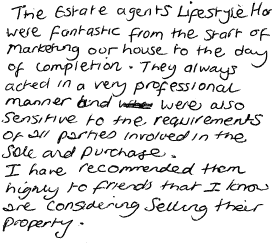 The Estate agents Lifestyle Ho
were fantastic from the start of
marketing our house to the day
of completion. They always
acted in a very professional
manner and were also
sensitive to the requirements
of all parties involved in the
sale and purchase.
I have recommended them
highly to friends that I know
are considering selling their
property.